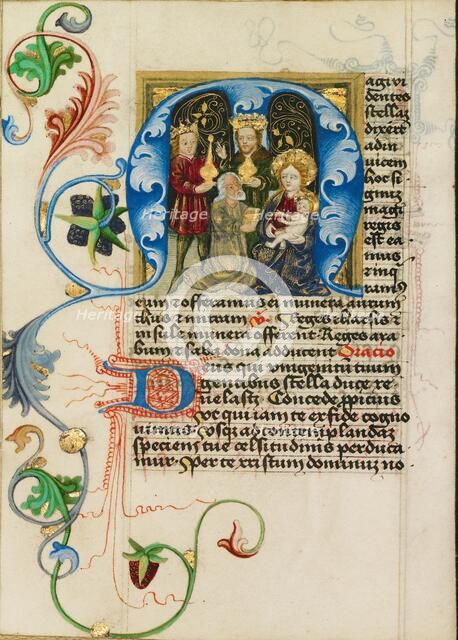 Magi vi
dentes
stellaz
dixert
ad in
uicem
hoc si
gnuz
magni
regis
est ea
mus
inqi
ram9
eum et offeramus ei munera aurum
thus et mirram Reges tharsis et
insule munera offerent Reges ara
bum et saba dona adducent Oracio
Deus qui unigenitum tuum
gentibus stella duce re
uelasti Concede ppicius
vt qui iam te ex fide cogno
uimus vsqz ad contemplandaz
speciem tue celsitudinis perduca
mur Per te xpistum dominum no
Heritage